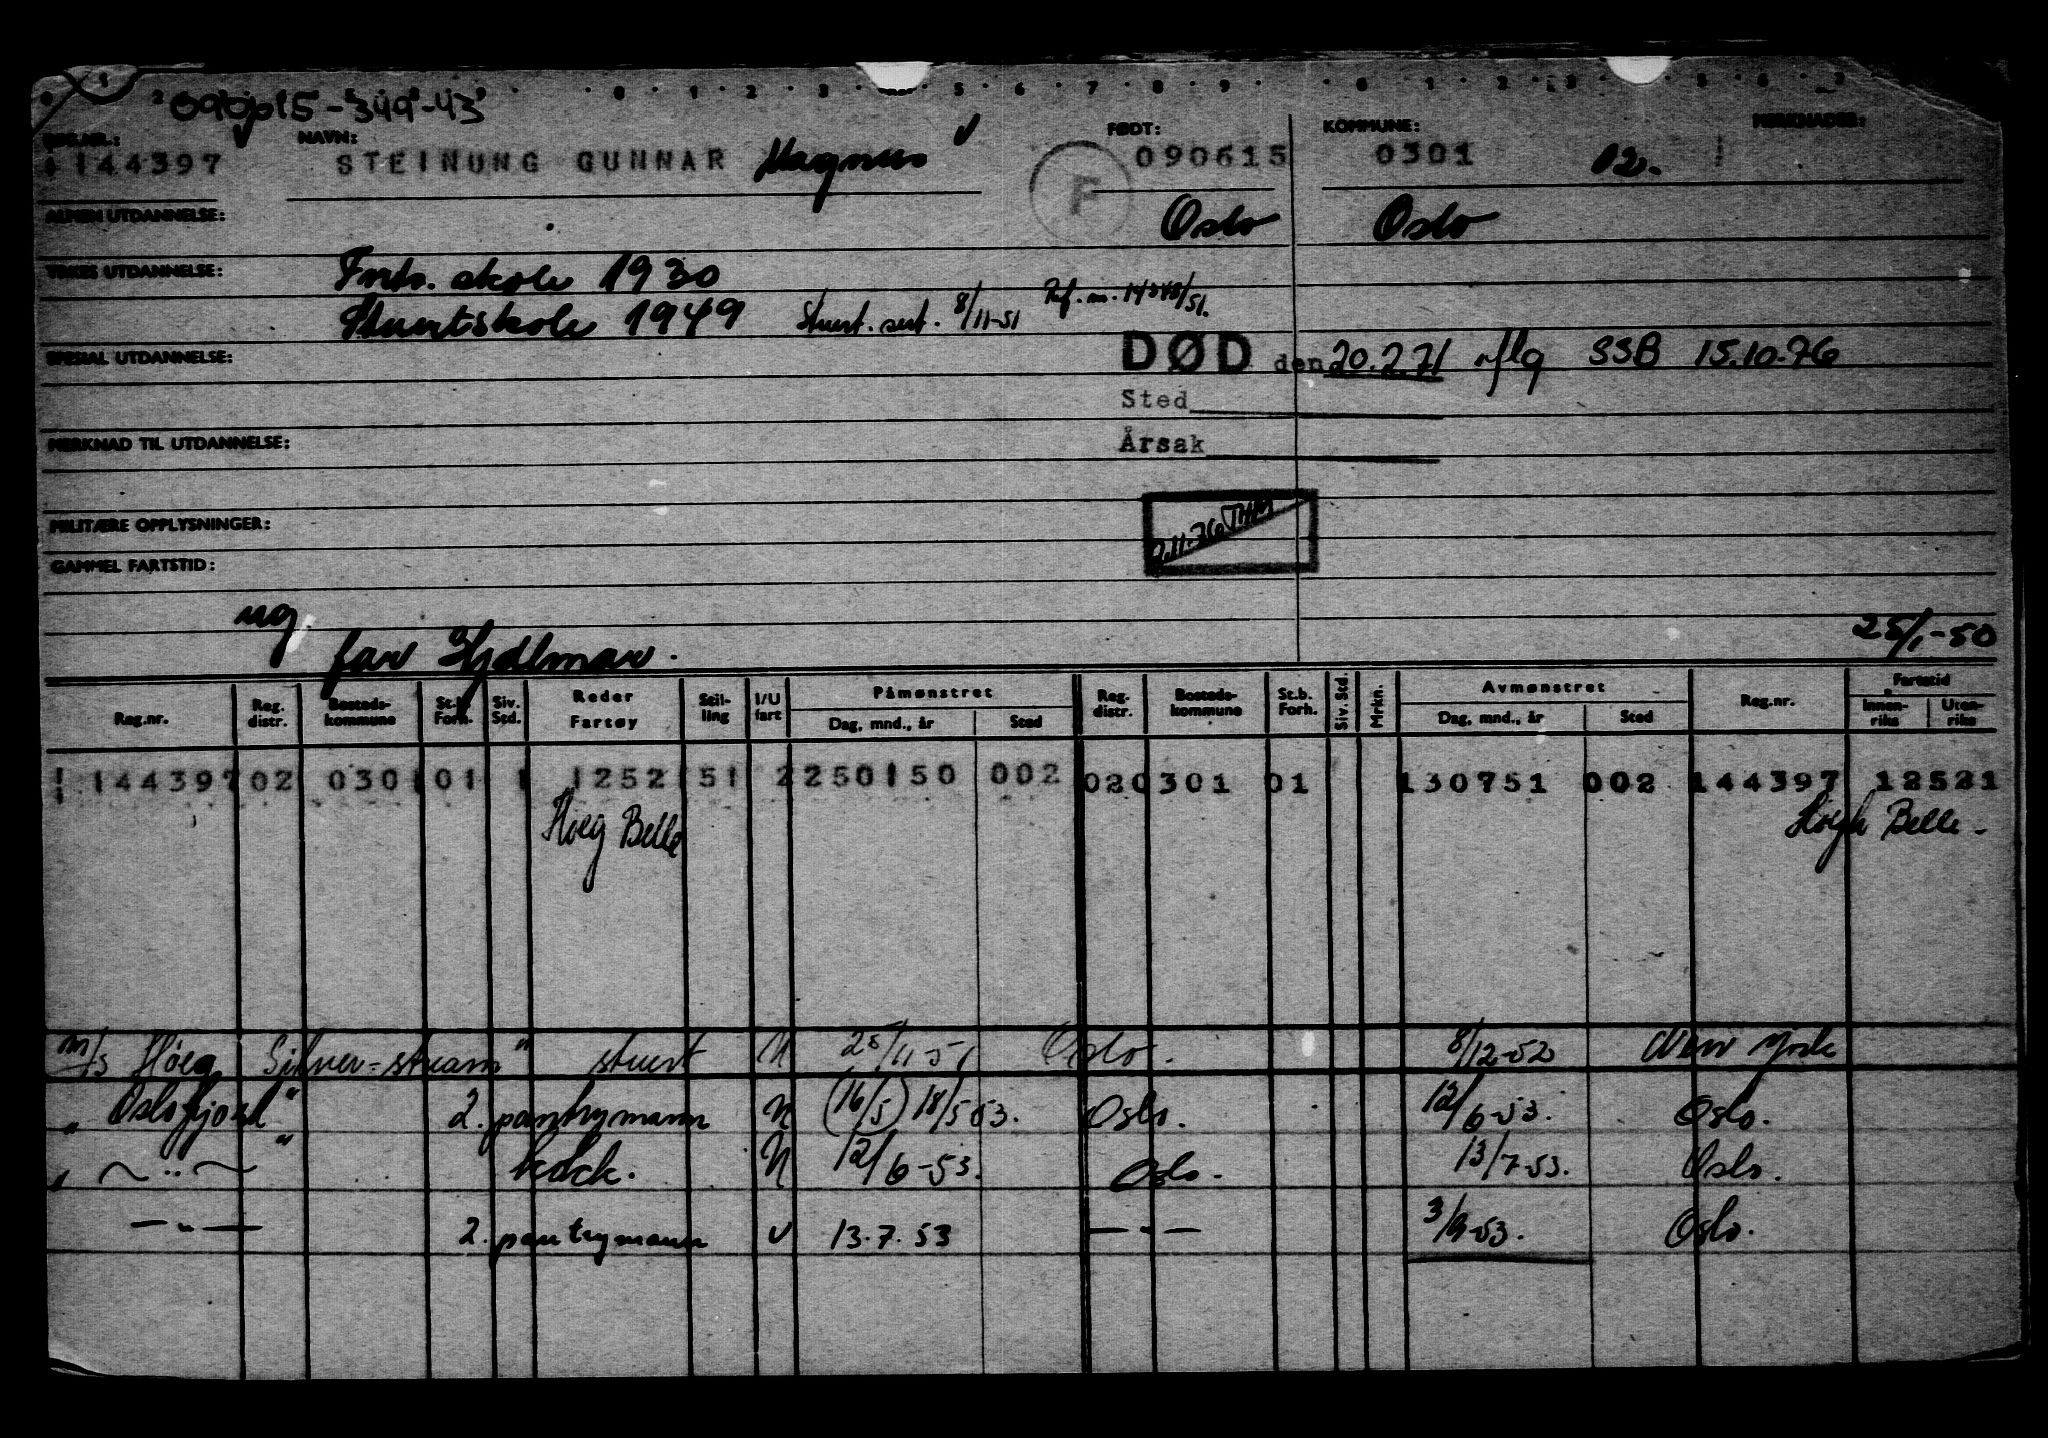 090615-349-43
REG.NR.: NAVN: FØDT: KOMMUNE: MERKNADER:
144397 STEINUNG GUNNAR Magnus F 090615 0301 02.
ALMEN UTDANNELSE: Oslo Oslo
YRKES UTDANNELSE: Frits. skole 1930
Stuertskole 1949 Stuert. sert. 8/11-51 Ref. nr. 14348/51.
SPESIAL UTDANNELSE: DØD den 20.2.71 iflg SSB 15.10.76
Sted
MERKNAD TIL UTDANNELSE: Årsak
MILITÆRE OPPLYSNINGER: 9.11.76
GAMMEL FARTSTID:
ug
far Hjalmar. 25/1-50
Reg.nr. Reg. distr. Bosteds-kommune St.b. Forh. Siv. Std. Reder Fartøy Stil-ling I/U fart Påmønstret Dag, mnd., år Sted Reg. distr. Bosteds-kommune St.b. Forh. Siv. Std. Mrkn. Avmønstret Dag, mnd., år Sted Reg.nr. Fartstid Innen-riks Uten-riks
144397 02 0301 01 1 1252 151 2 250150 002 02 0301 01 130751 002 144397 12521
Høeg Belle Høegh Belle -
m/s Høeg Silver-stream" stuert U 25/11-51 Oslo. 8/12-52 New York
" Oslofjord" 2. pantrymann U (16/5) 18/5 53. Oslo. 12/6-53. Oslo.
" — " — " kokk. U 12/6-53. Oslo. 13/7-53. Oslo.
— " — 2. pantrymann U 13.7.53 — " — 3/9-53. Oslo.